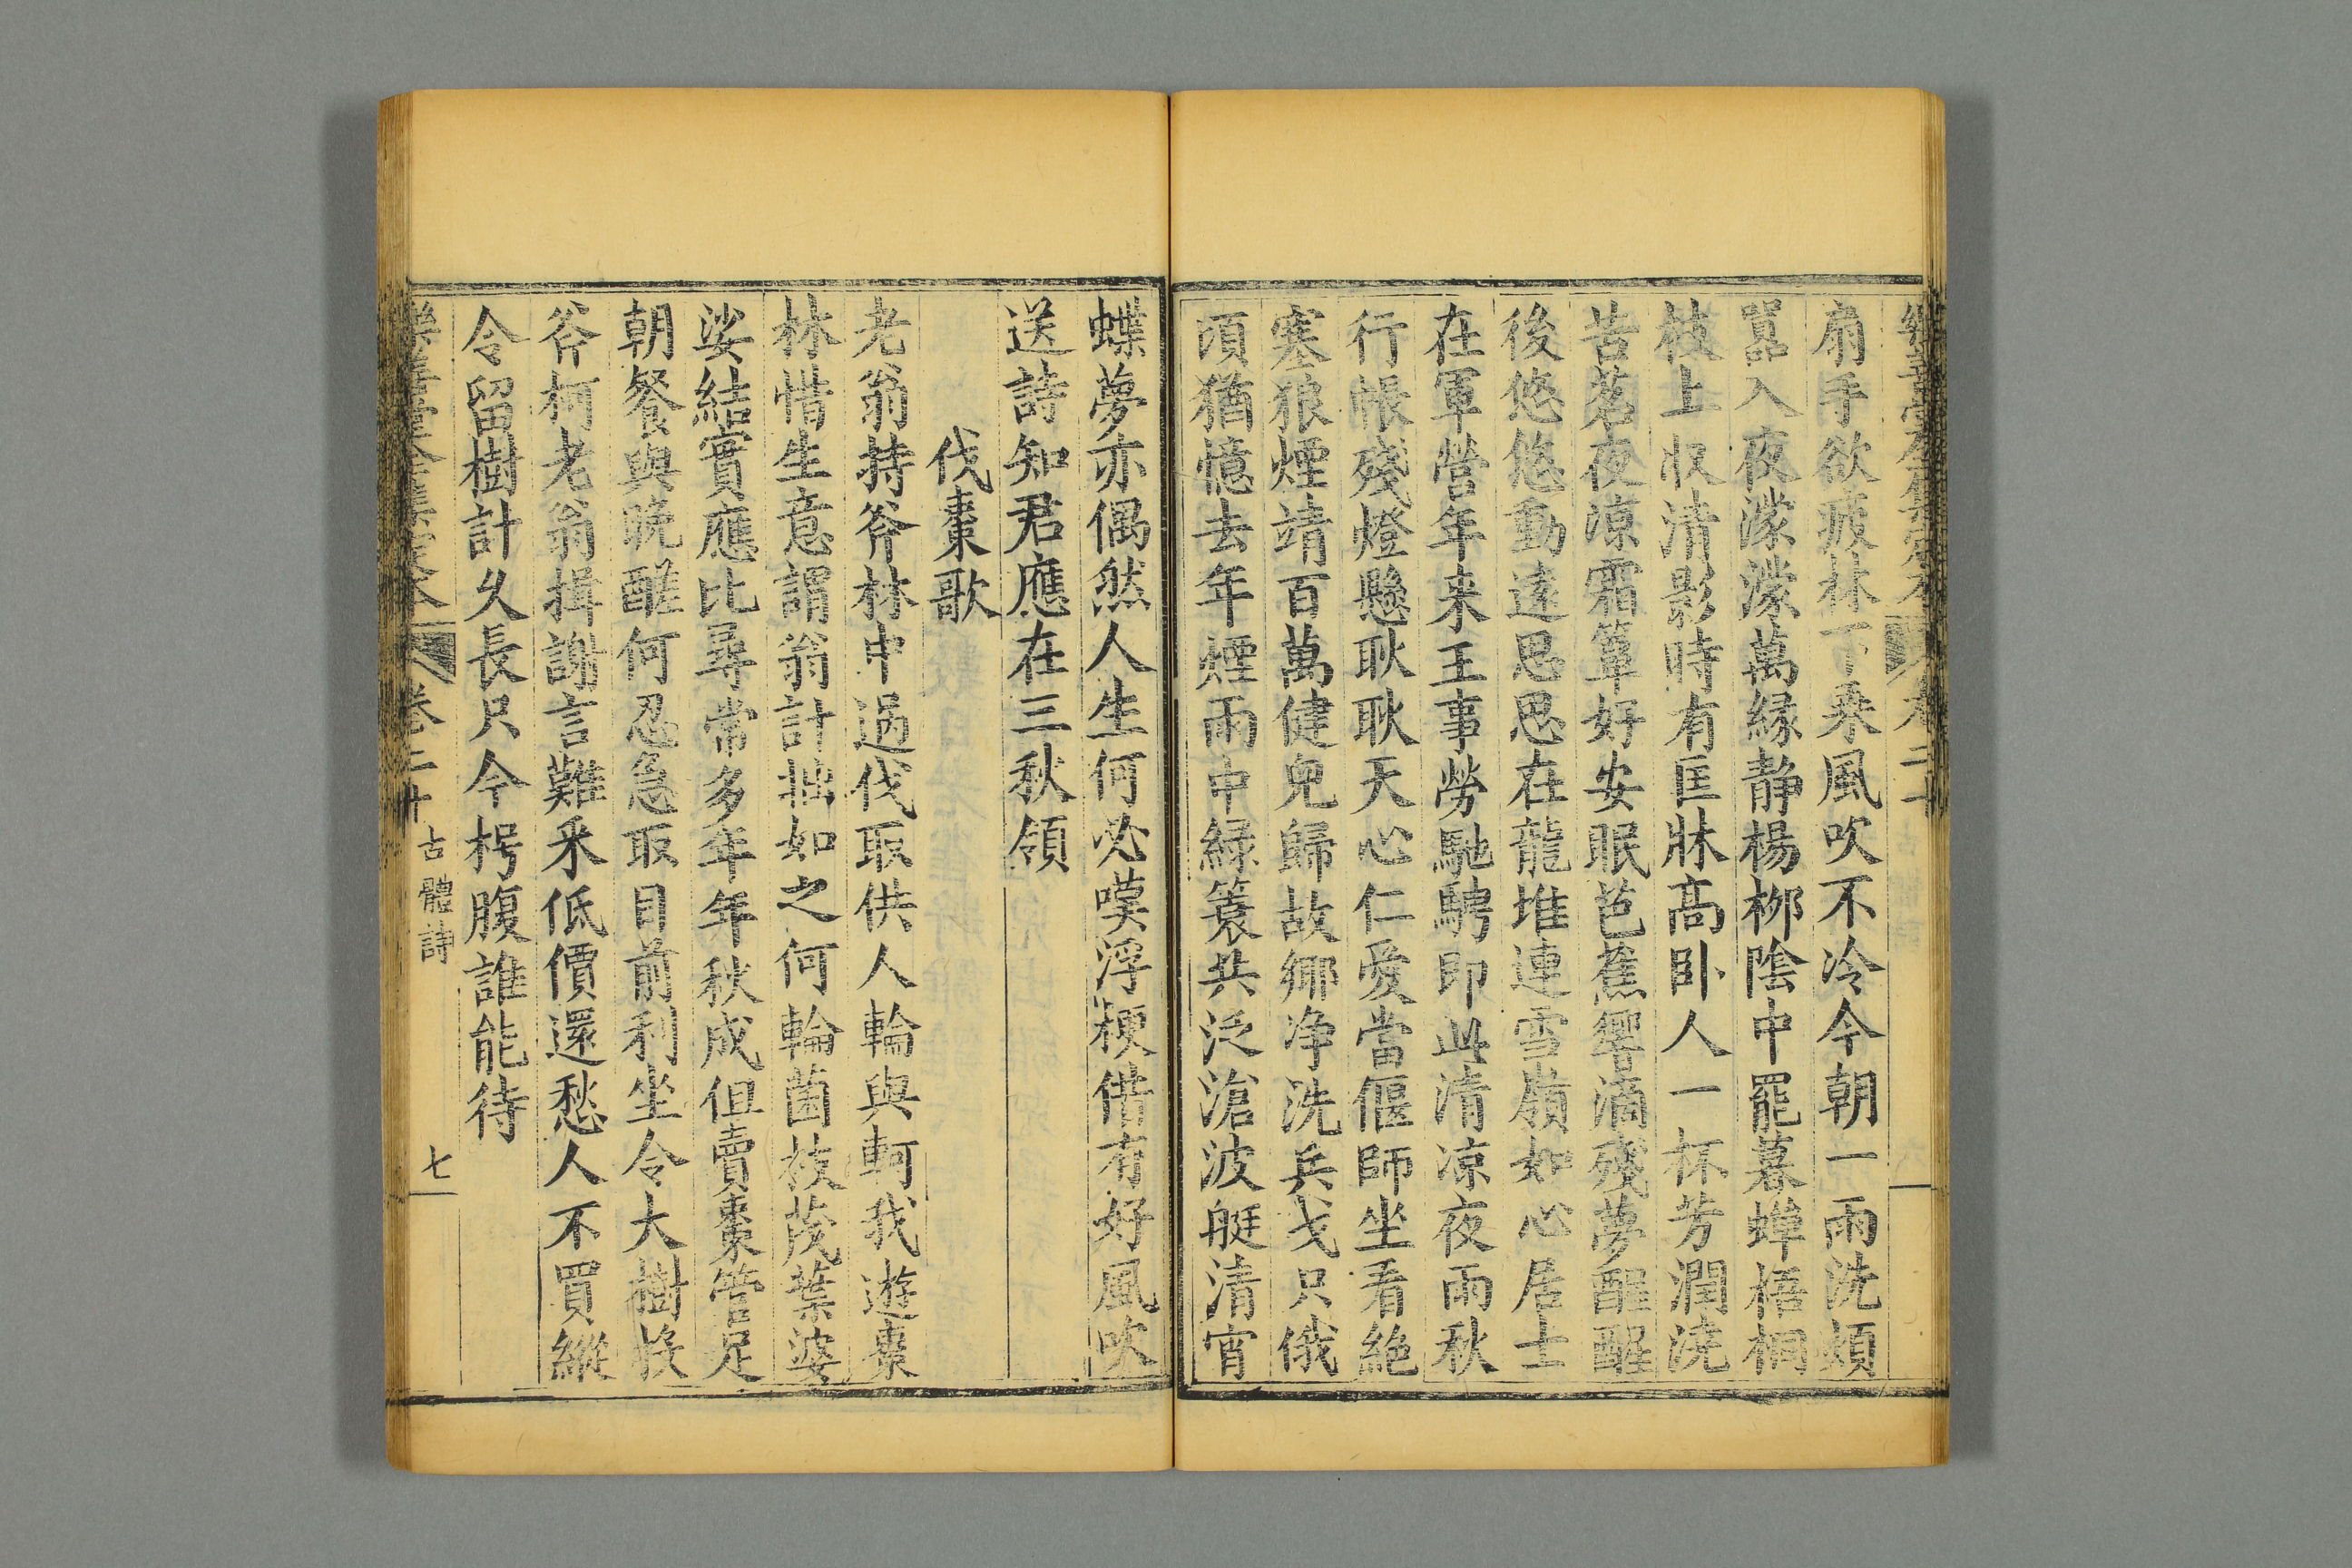 樂善堂全集定本 卷二十
扇手欲疲林下乘風吹不冷今朝一雨洗煩
囂入夜濛濛萬緣静楊栁隂中罷暮蟬梧桐
枝上収清影時有匡牀高卧人一杯芳潤澆
苦茗夜涼霜簟好安眠芭蕉響滴殘夢醒醒
後悠悠動遠思思在龍堆連雪嶺如心居士
在軍營年来王事勞馳騁即此清凉夜雨秋
行帳殘燈懸耿耿天心仁愛當偃師坐看絶
塞狼煙靖百萬健兒歸故鄉净洗兵戈只俄
頃猶憶去年煙雨中緑簑共泛滄波艇清宵
蝶夢亦偶然人生何必嘆浮梗借有好風吹
送詩知君應在三秋領
伐棗歌
老翁持斧林中過伐取供人輪與軻我遊棗
林惜生意謂翁計拙如之何輪菌枝茂葉婆
娑結實應比尋常多年年秋成但賣棗管足
朝餐與晚醝何忍急取目前利坐令大樹挨
斧柯老翁揖謝言難釆低價還愁人不買縱
令留樹計久長只今枵腹誰能待
樂善堂全集定本 卷二十 古體詩 七